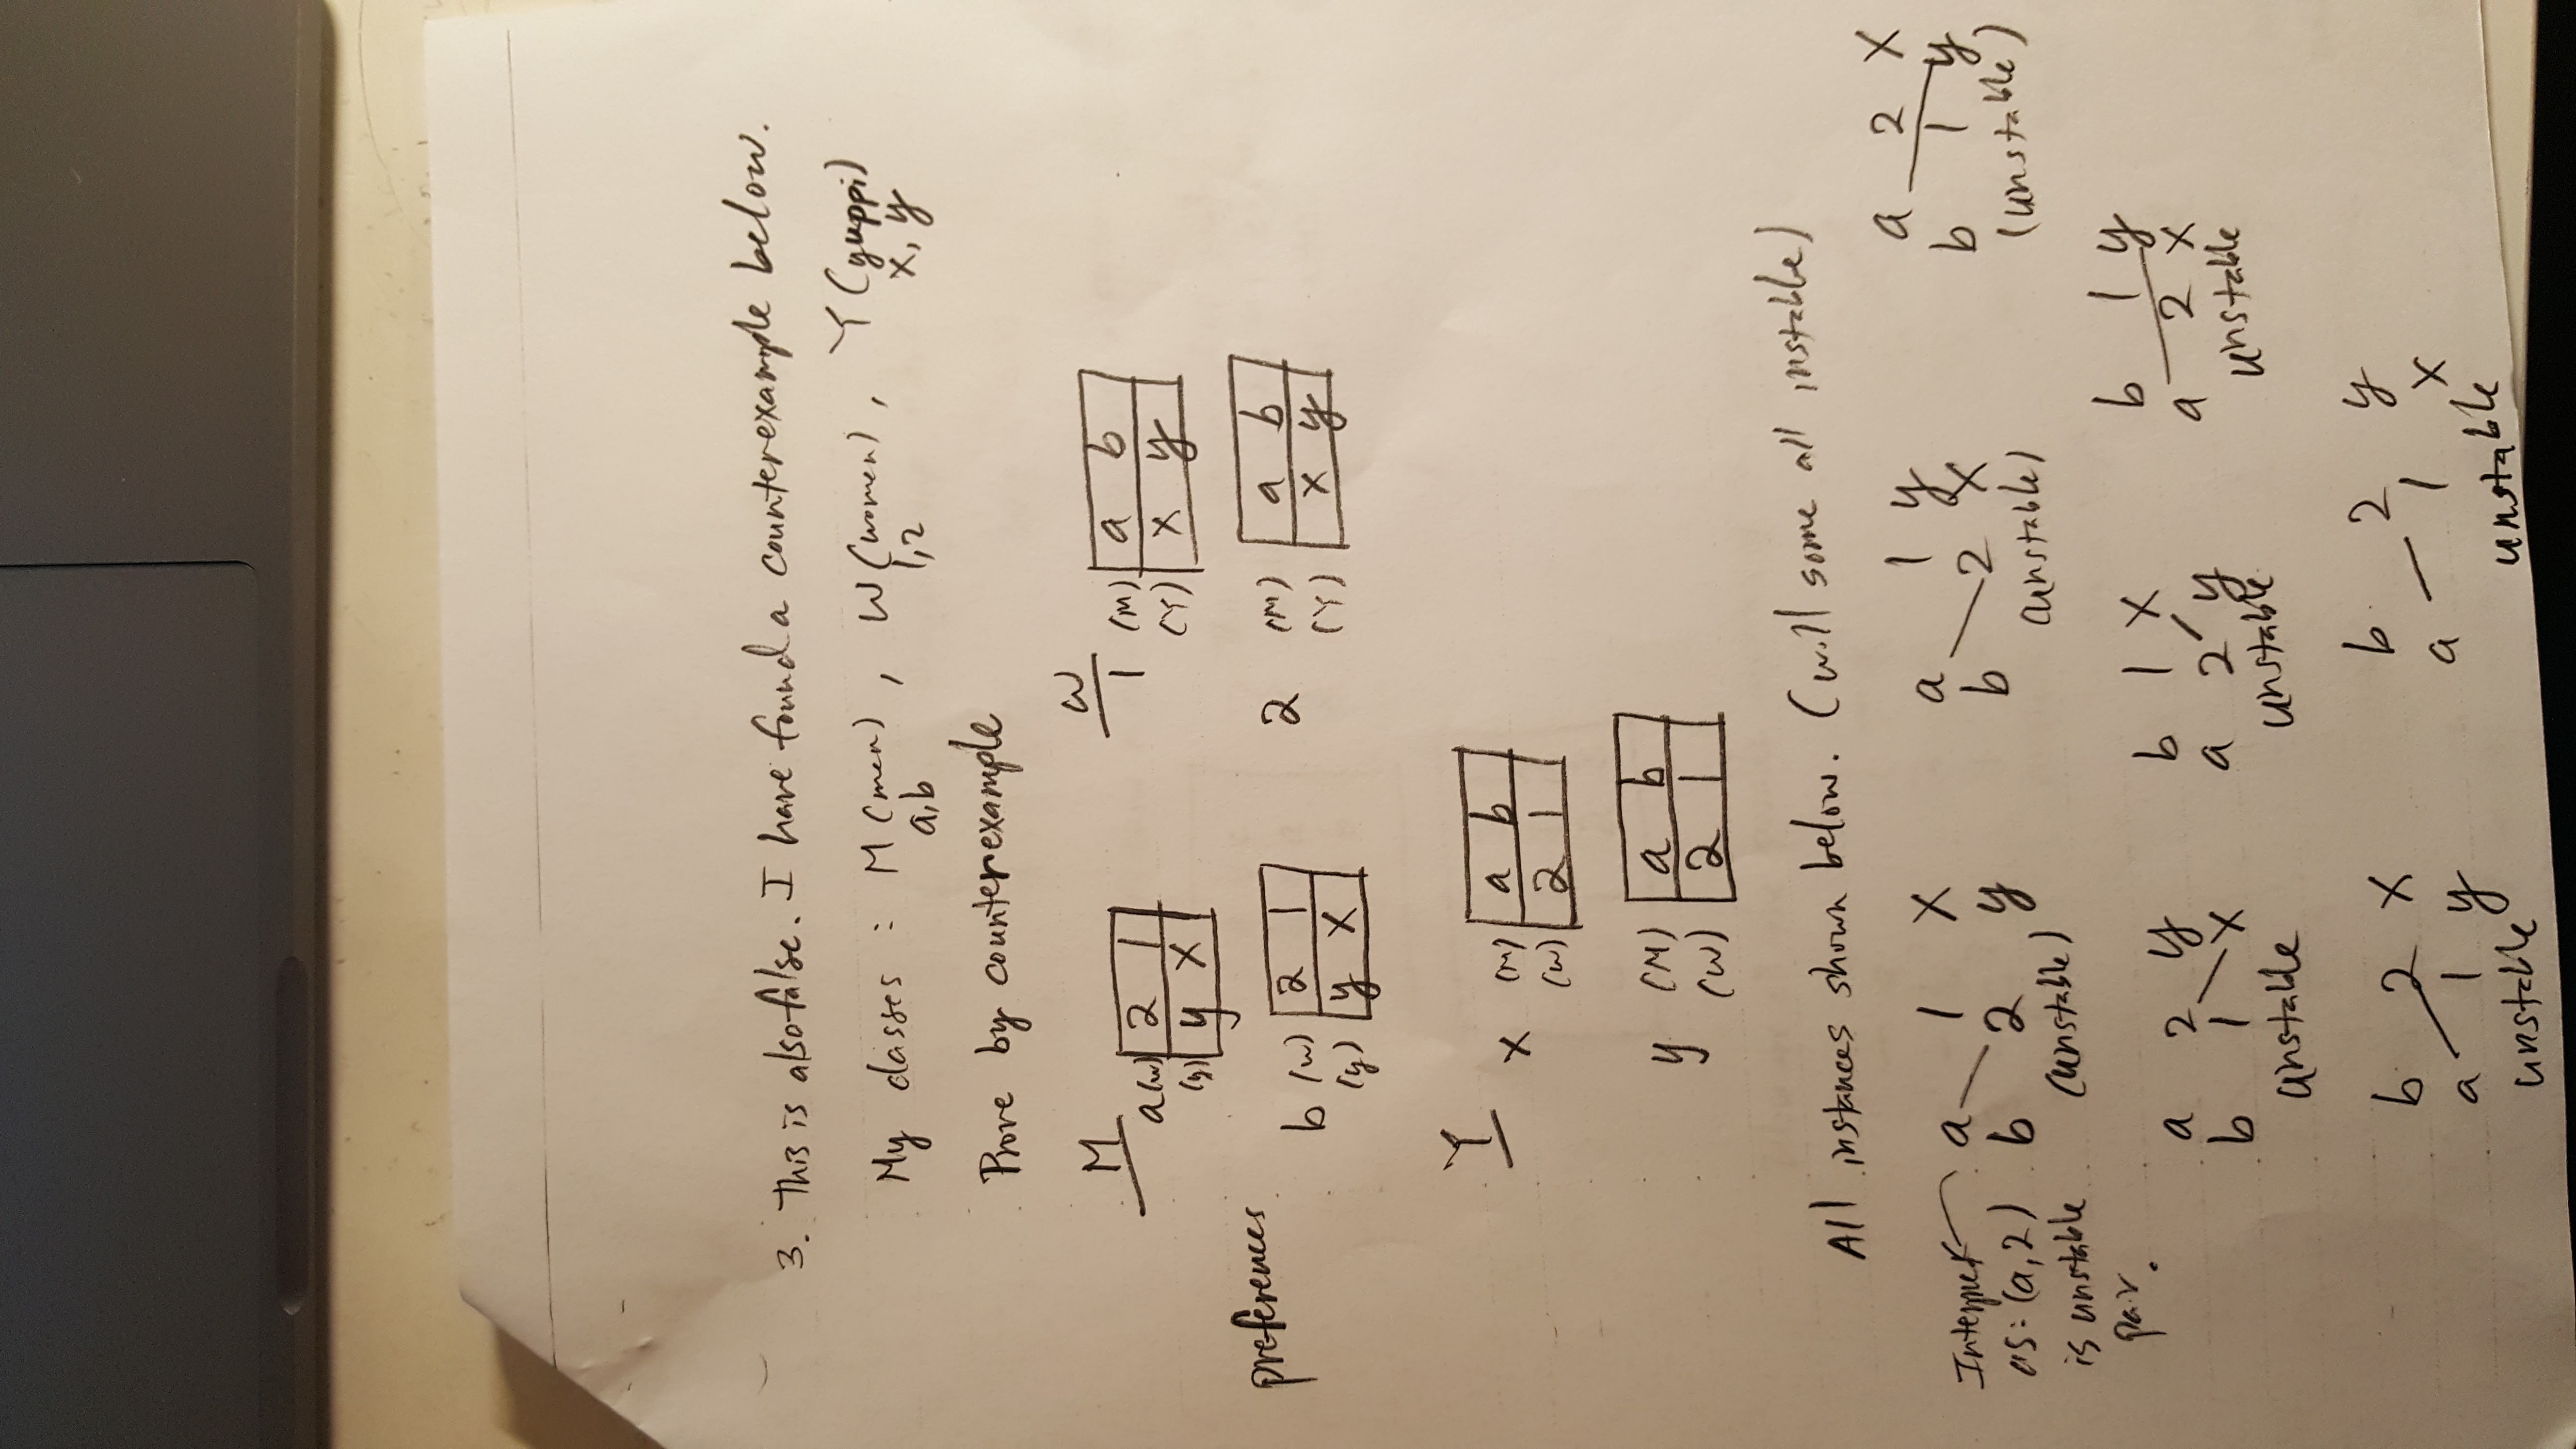 3. This is also false. I have found a counterexample below.
My classes : M (men) , W (women) , Y (yuppi)
a,b 1,2 x, y
Prove by counterexample
M W
a(w) 2 1 1 (M) a b
(y) y x (Y) x y
preferences
b (w) 2 1 2 (M) a b
(y) y x (Y) x y
Y
x (M) a b
(w) 2 1
y (M) a b
(W) 2 1
All instances shown below. (will some all instable)
Interpret as: (a,2) is unstable pair.
a 1 x
b 2 y
(unstable)
a 1 y
b 2 x
(unstable)
a 2 x
b 1 y
(unstable)
a 2 y
b 1 x
unstable
b 1 x
a 2 y
unstable
b 1 y
a 2 x
unstable
b 2 x
a 1 y
unstable
b 2 y
a 1 x
unstable